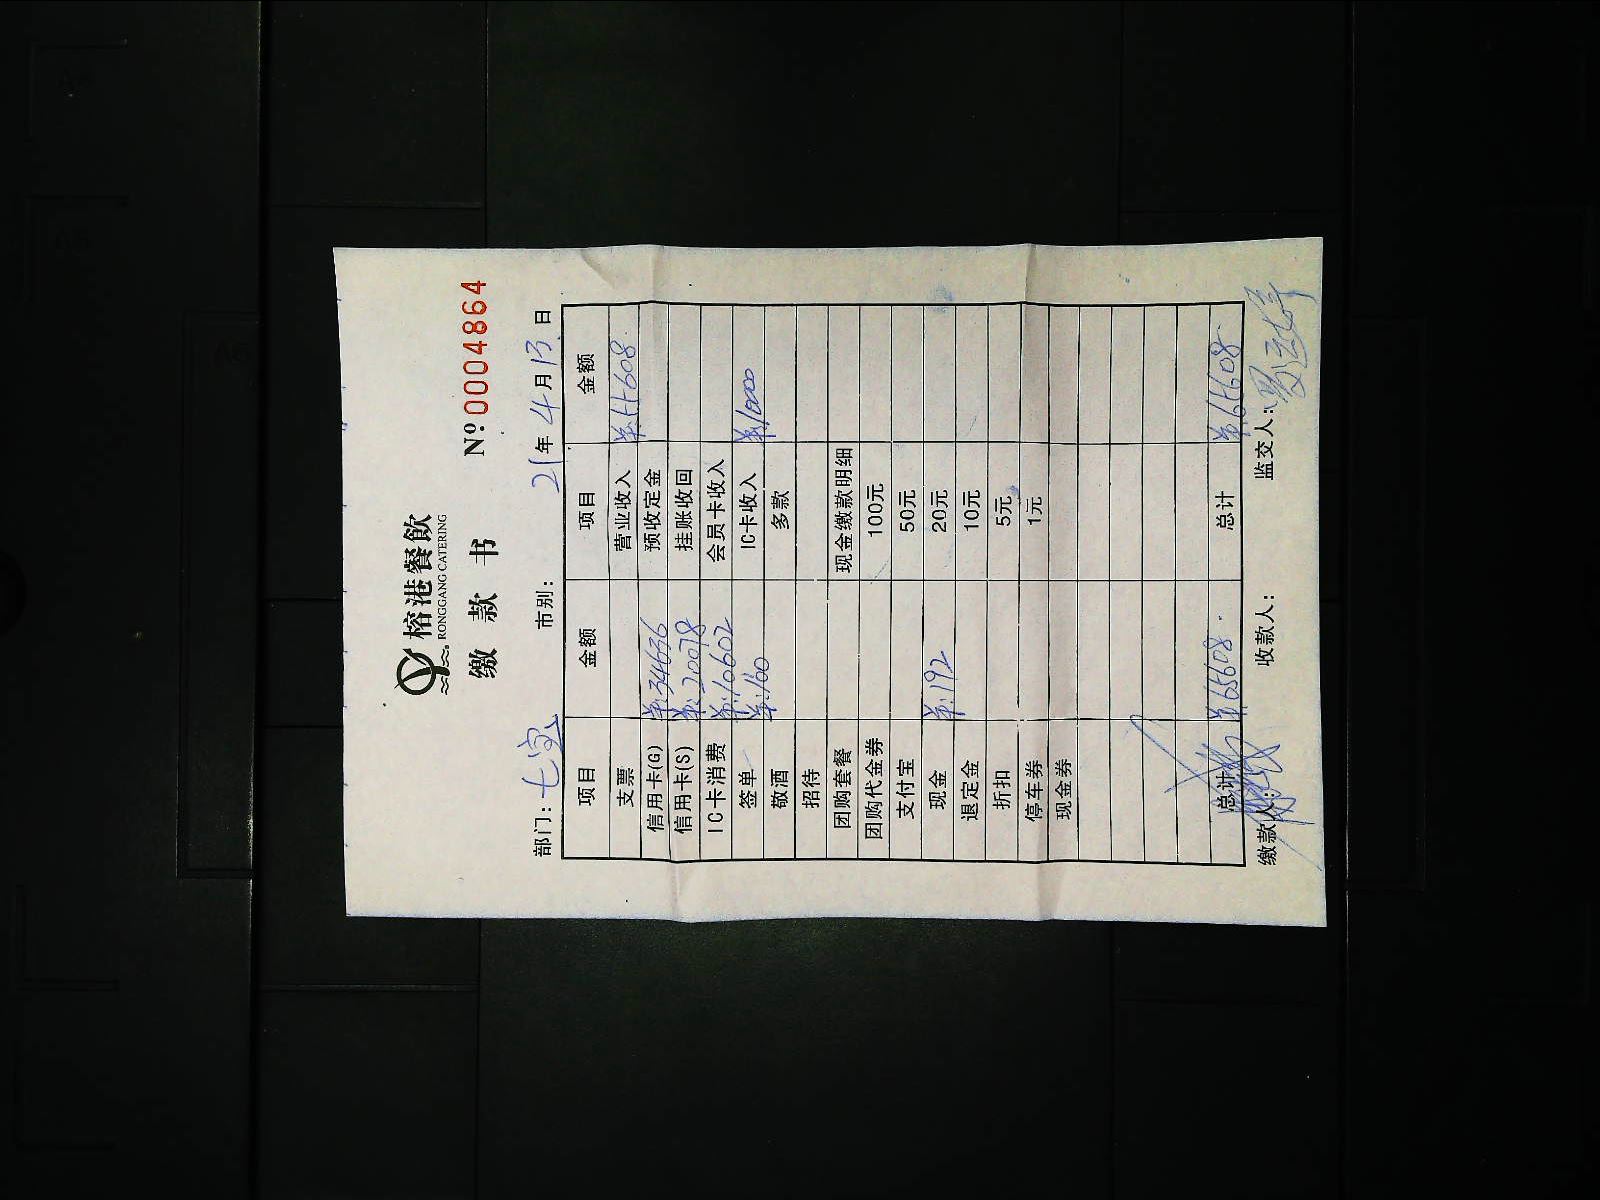 榕港餐飲
RONGGANG CATERING
缴 款 书
Nº:0004864
部门:七宝 市别: 21年4月13日
项目 金额 项目 金额
支票 营业收入 ¥:55608
信用卡(G) ¥:34636 预收定金
信用卡(S) ¥:20078 挂账收回
IC卡消费 ¥:10602 会员卡收入
签单 ¥:100 IC卡收入 ¥:10000
敬酒 多款
招待
团购套餐 现金缴款明细
团购代金券 100元
支付宝 50元
现金 ¥:192 20元
退定金 10元
折扣 5元
停车券 1元
现金券
总计 ¥:65608. 总计 ¥:65608.
缴款人: 收款人: 监交人: